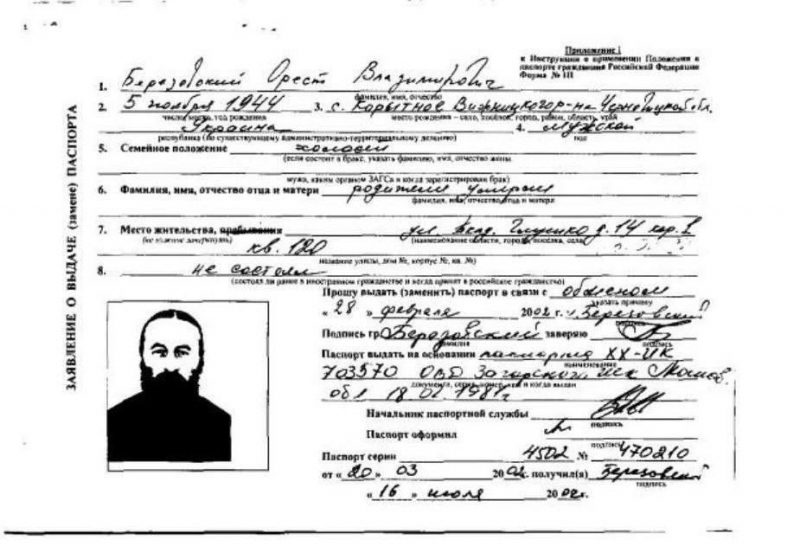 Приложение 1
к Инструкции о применении Положения о
паспорте гражданина Российской Федерации
Форма № 1П
ЗАЯВЛЕНИЕ О ВЫДАЧЕ (замене) ПАСПОРТА
1. Березовский Орест Владимирович
фамилия, имя, отчество
2. 5 ноября 1944 3. с. Корытное Вижницкого р-на Черновицкой обл.
число, месяц, год рождения место рождения – село, посёлок, город, район, область, край
Украина 4. мужской
республика (по существующему административно-территориальному делению) пол
5. Семейное положение холост
(если состоит в браке, указать фамилию, имя, отчество жены
мужа, каким органом ЗАГСа и когда зарегистрирован брак)
6. Фамилия, имя, отчество отца и матери родители умерли
фамилия, имя, отчество отца и матери
7. Место жительства, пребывания ул. Акад. Глушко д. 14 кор.
(не нужное зачеркнуть) (наименование области, города, поселка, села)
кв. 120
название улицы, дом №, корпус №, кв. №)
8. не состоял
(состоял ли ранее в иностранном гражданстве и когда принят в российское гражданство)
Прошу выдать (заменить) паспорт в связи с обменом
указать причину
« 28 » февраля 2002 г. Березовский
подпись
Подпись гр. Березовский заверяю
фамилия подпись
Паспорт выдать на основании паспорта XX-ИК
наименование
703570 ОВД Загорского
документа, серия, номер, кем и когда выдан
обл 18 01.1981г
Начальник паспортной службы
подпись
Паспорт оформил
подпись
Паспорт серии 4502 № 470210
от « 20 » 03 2002г. получил(а) Березовский
подпись
« 16 » июля 2002г.